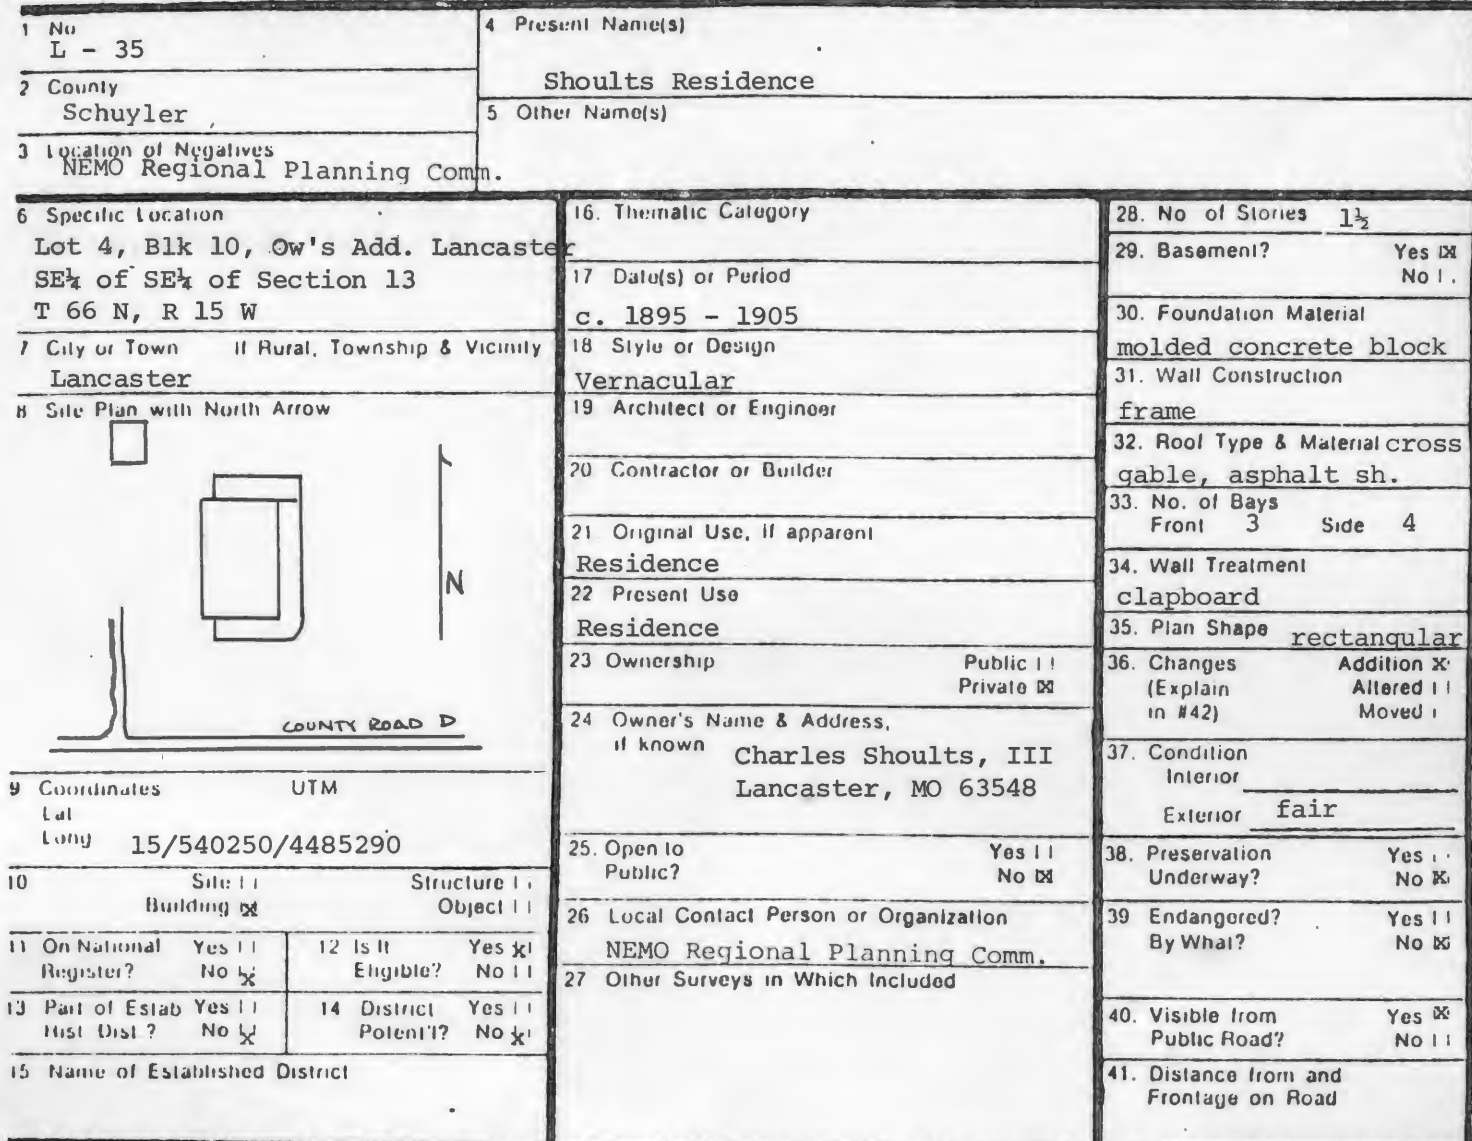 1 No
L - 35
2 County
Schuyler
3 Location of Negatives
NEMO Regional Planning Comm.
4 Present Name(s)
Shoults Residence
5 Other Name(s)
6 Specific Location
Lot 4, Blk 10, Ow's Add. Lancaster
SE¼ of SE¼ of Section 13
T 66 N, R 15 W
7 City or Town If Rural, Township & Vicinity
Lancaster
8 Site Plan with North Arrow
N
COUNTY ROAD D
9 Coordinates UTM
Lat
Long 15/540250/4485290
10 Site Structure
Building X Object
11 On National Yes
Register? No X
12 Is It Yes X
Eligible? No
13 Part of Estab Yes
Hist Dist? No X
14 District Yes
Potent'l? No X
15 Name of Established District
16. Thematic Category
17 Date(s) or Period
c. 1895 - 1905
18 Style or Design
Vernacular
19 Architect or Engineer
20 Contractor or Builder
21 Original Use, if apparent
Residence
22 Present Use
Residence
23 Ownership Public
Private X
24 Owner's Name & Address,
if known
Charles Shoults, III
Lancaster, MO 63548
25. Open to Yes
Public? No X
26 Local Contact Person or Organization
NEMO Regional Planning Comm.
27 Other Surveys in Which Included
28. No of Stories 1½
29. Basement? Yes X
No
30. Foundation Material
molded concrete block
31. Wall Construction
frame
32. Roof Type & Material cross
gable, asphalt sh.
33. No. of Bays
Front 3 Side 4
34. Wall Treatment
clapboard
35. Plan Shape rectangular
36. Changes Addition X
(Explain Altered
in #42) Moved
37. Condition
Interior
Exterior fair
38. Preservation Yes
Underway? No X
39 Endangered? Yes
By What? No X
40. Visible from Yes X
Public Road? No
41. Distance from and
Frontage on Road